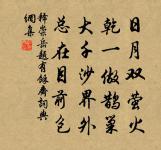 日月双萤火
乾一做鹊巢
大千沙界外
总在目前包
释崇岳题有余斋词典
网集